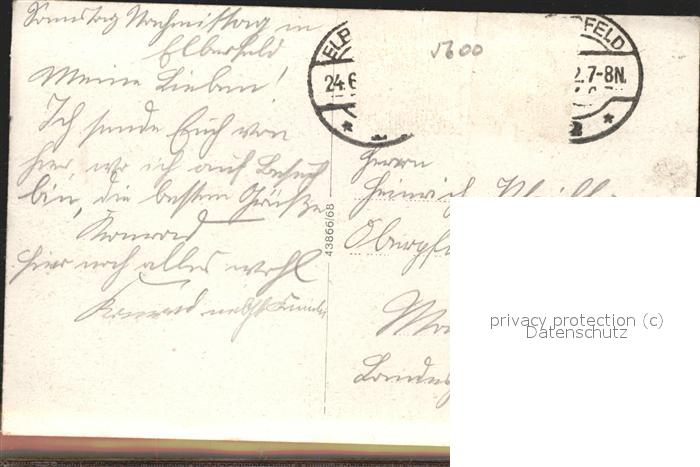 Sonntag Nachmittag in
Elberfeld
Meine Lieben!
Ich sende Euch von
hier, wo ich auf Besuch
bin, die besten Grüße
Konrad
hier noch alles wohl
Konrad nebst Familie
ELB
FELD
24.6
2.7-8N.
5600
43866/68
Herrn
Heinrich
privacy protection (c)
Datenschutz